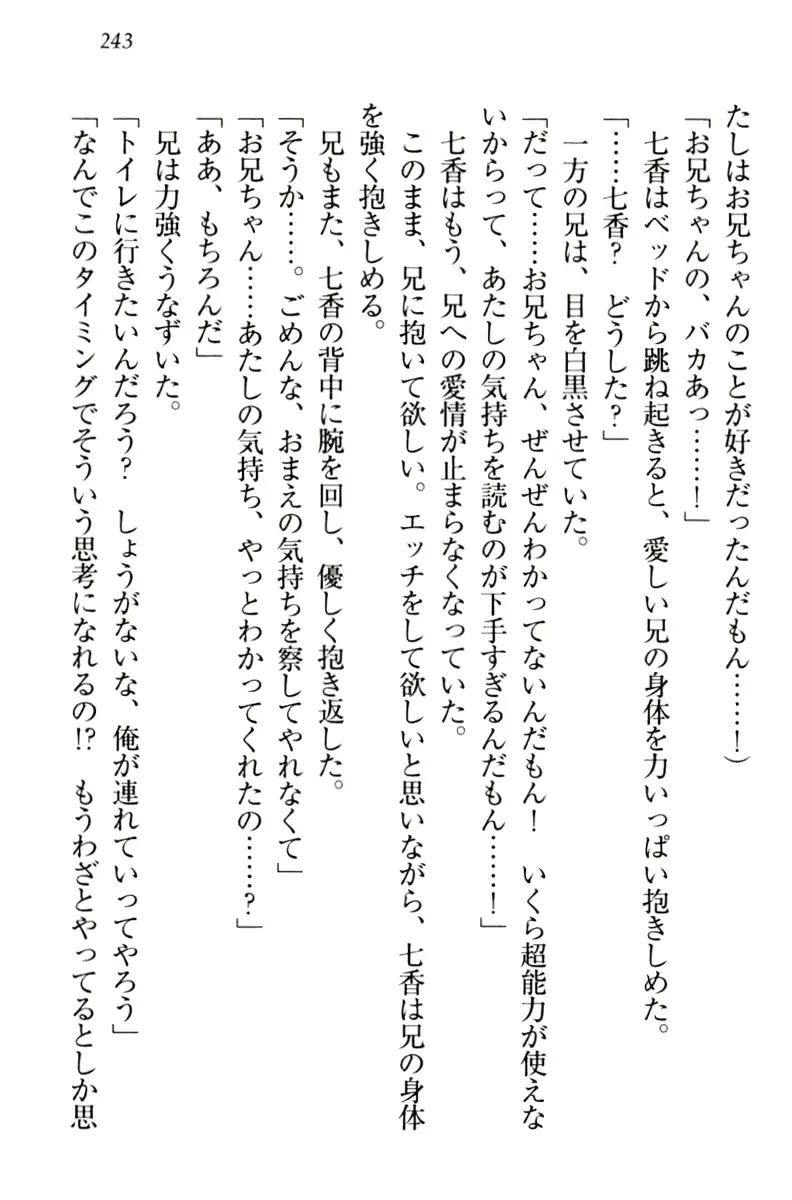 243
たしはお兄ちゃんのことが好きだったんだもん……！）
「お兄ちゃんの、バカあっ……！」
七香はベッドから跳ね起きると、愛しい兄の身体を力いっぱい抱きしめた。
「……七香？　どうした？」
一方の兄は、目を白黒させていた。
「だって……お兄ちゃん、ぜんぜんわかってないんだもん！　いくら超能力が使えな
いからって、あたしの気持ちを読むのが下手すぎるんだもん……！」
七香はもう、兄への愛情が止まらなくなっていた。
このまま、兄に抱いて欲しい。エッチをして欲しいと思いながら、七香は兄の身体
を強く抱きしめる。
兄もまた、七香の背中に腕を回し、優しく抱き返した。
「そうか……。ごめんな、おまえの気持ちを察してやれなくて」
「お兄ちゃん……あたしの気持ち、やっとわかってくれたの……？」
「ああ、もちろんだ」
兄は力強くうなずいた。
「トイレに行きたいんだろう？　しょうがないな、俺が連れていってやろう」
「なんでこのタイミングでそういう思考になれるの!?　もうわざとやってるとしか思